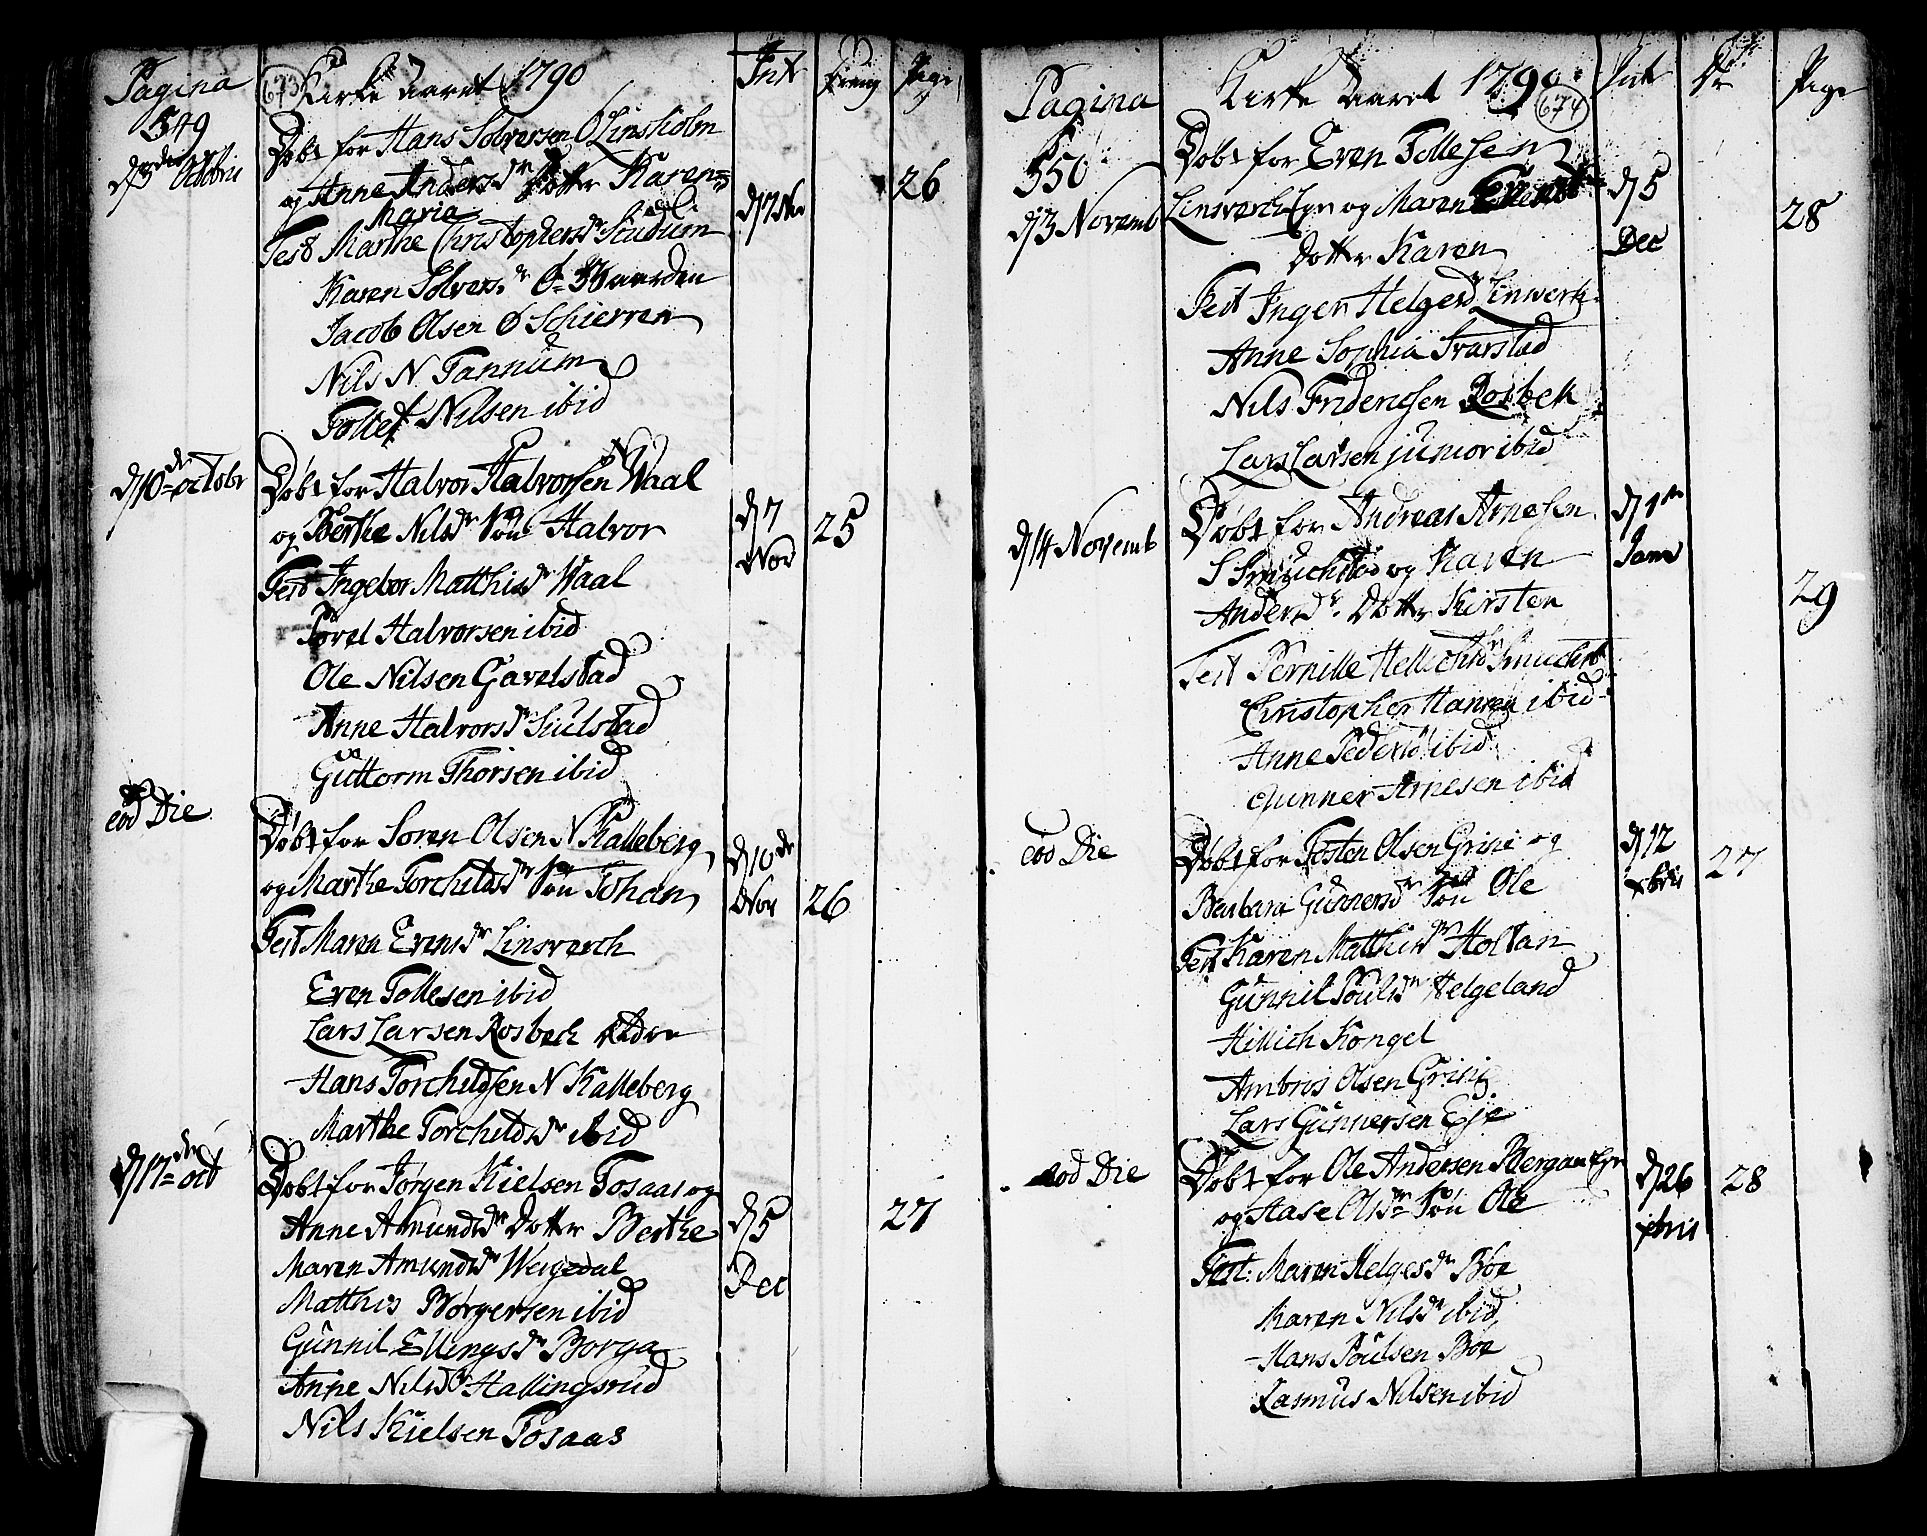 Pagina
549
673
Kirke Aaret 1790
Int
Dreng
Pige
d 3de Octobris
Døbt for Hans Solversen Ø Linsholm
og Anne Andersdr Dotter Karen
Maria
d 7 Nov
26
Test Marthe Christophersdr
Karen Solversdr Ø
Jacob Olsen Ø Schierven
Nils N. Tannum
Tollef Nilsen ibid
d 10de octobr
Døbt for Halvor Halvorsen Waal
og Berthe Nilsdr Søn Halvor
d 7
Nov
25
Test Ingebor Matthisdr Waal
Povel Halvorsen ibid
Ole Nilsen Gavelstad
Anne Halvorsdr Sulstad
Guttorm Thorsen ibid
eod Die
Døbt for Soren Olsen N Kalleberg
og Marthe Torchildsdr Søn Johan
d 10de
Nov
26
Test Maren Evensdr Linsverch
Even Tollesen ibid
Lars Larsen Rosbech Eldre
Hans Torchildsen N Kalleberg
Marthe Torchildsdr ibid
d 17de oct
Døbt for Jørgen Kielsen Fosaas og
Anne Amundsdr Dotter Berthe
d 5
Dec
27
Maren Amundsdr Weigedal
Matthis Børgersen ibid
Gunnil Ellingsdr Borga
Anne Nilsdr Hallingsrud
Nils Kielsen Fosaas
Pagina
550
Kirke Aaret 1790
674
Int
Dr
Pige
d 3 Novemb
Døbt for Even Tollesen
Linsverch Eyr og Maren Evensdr
Dotter Karen
d 5
Dec
28
Test Inger Helgesdr Linverk
Anne Sophia Svarstad
Nils Fridericsen Rosbek
Lars Larsen junior ibid
d 14 Novemb
Døbt for Andreas Arnesen
S Smuchestad og Karen
Andersdr Dotter Kirsten
d 1ste
Janv
29
Test Pernille Hellichsdr Smuchest
Christopher Hansen ibid
Anne Pedersd ibid
Gunner Arnesen ibid
eod Die
Døbt for Tosten Olsen Grini og
Barbara Gunnersdr Søn Ole
d 12
xbris
27
Test Karen Matthisdr Holtan
Gunnil Poulsdr Helgeland
Hellich Kongel
Ambros Olsen Grini
Lars Gunnersen Eje
eod Die
Døbt for Ole Andersen Bergan Eyr
og Aase Olsdr Søn Ole
d 26
xbris
28
Test: Maren Helgesdr Boe
Maren Nilsdr ibid
Hans Poulsen Boe
Rasmus Nilsen ibid